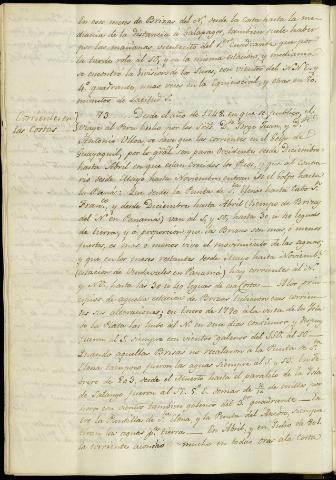 en esos meses de Brizas del N.e desde la Costa hasta la me-
diania de la distancia a Galapagos, tambien suele haber
por las mañanas vientecito del 1.er Quadrante, que por
la tarde rola al SO, y en la misma estacion y mediania
se encontró la division de los Sures, con vientos del N.NE y
4.o quadrante, unas veces en la Equinoccial, y otras en 30
minutos de Latitud S.
Corrientes en
las Costas
73. Desde el año de 1748 en que se publicó el
Viage al Perú hecho por los SS.es D.n Jorge Juan, y D.n
Antonio Ulloa, se sabe que las corrientes en el Golfo de
Guayaquil, por lo gral son para Occidente desde Diciembre
hasta Abril en que están crecidos los Rios, y que al contra-
rio desde Mayo hasta Noviembre entran en el Golfo hacia
la Puná: Que desde la Punta de S.ta Elena hasta Cabo S.n
Fran.co, y desde Diciembre hasta Abril (tiempo de Brizas
del N.e en Panamá) van al S, y SO, hasta 30, u 40 leguas
de tierra, y a proporcion que las Brisas son mas ó menos
fuertes, es mas o menos vivo el movimiento de las aguas,
y que en los meses restantes desde Mayo hasta Noviembre
(estacion de Vendavales en Panamá) hay corrientes al N.
y NO, hasta las 30 u 40 leguas de la Costa. A los prin-
cipios de aquella estacion de Brizas tubieron sus corrien-
tes sus alteraciones; en Enero de 1790 a la vista de la Isla
de la Plata las hubo del N. en unos dias continuos, y despues
fueron al S. siempre con vientos galenos del SSO. al SO.
Quando aquellas Brisas no recalaron a la Punta de S.ta
Elena tampoco fueron las aguas siempre al S. y SO. En Fe-
brero de 803, desde el Muerto hasta el paralelo de la Isla
de Salango fueron al SO.
horro con viento tambien galeno del 3.er quadrante. En-
tre la Puntilla de S.ta Elena, y la Punta del Ancón, siempre
tiran las aguas p.a tierra. En Abril, y en Julio de 801
la corriente mucho en todas oras a la costa